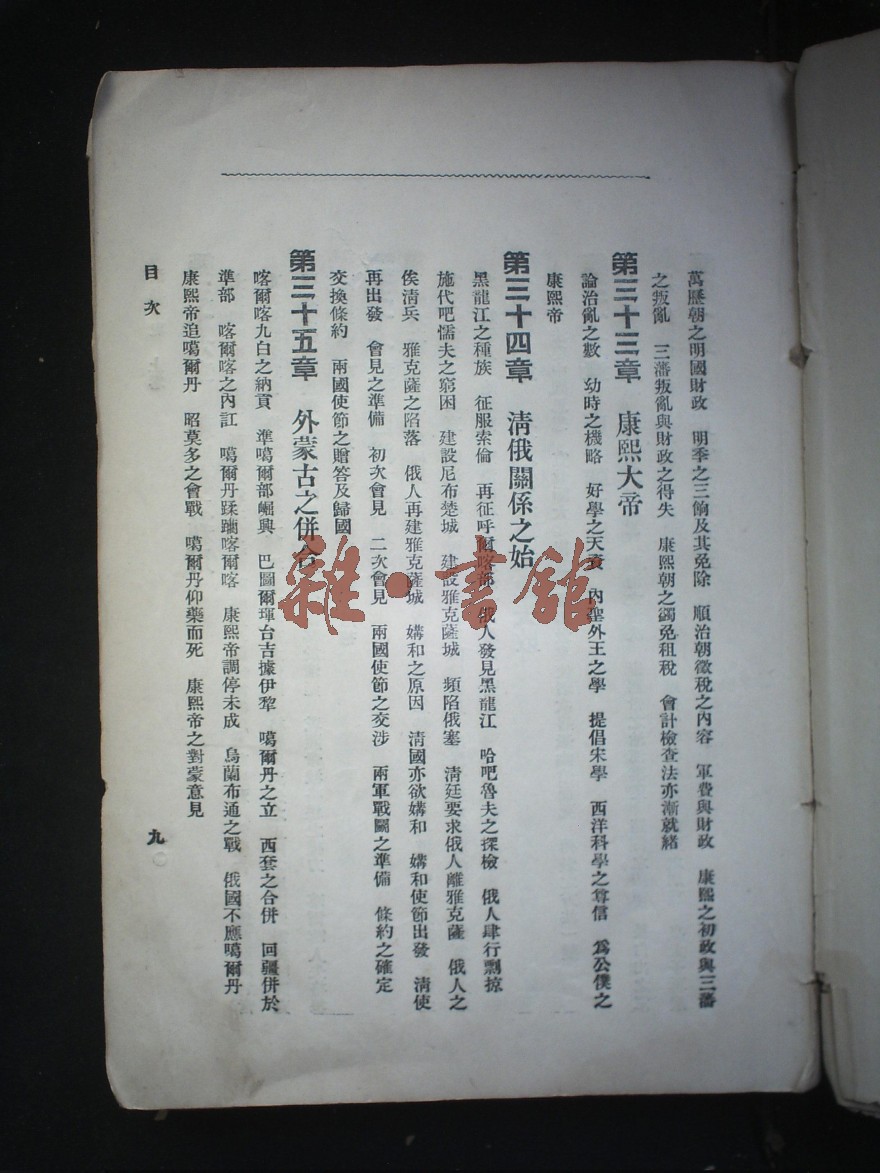 萬歷朝之明國財政　明季之三餉及其免除　順治朝徵稅之內容　軍費與財政　康熙之初政與三藩
之叛亂　三藩叛亂與財政之得失　康熙朝之蠲免租稅　會計檢查法亦漸就緒
第三十三章　康熙大帝
論治亂之數　幼時之機略　好學之天資　內聖外王之學　提倡宋學　西洋科學之尊信　為公僕之
康熙帝
第三十四章　清俄關係之始
黑龍江之種族　征服索倫　再征呼爾喀部　俄人發見黑龍江　哈吧魯夫之探檢　俄人肆行剽掠
施代吧懦夫之窮困　建設尼布楚城　建設雅克薩城　頻陷俄塞　清廷要求俄人離雅克薩　俄人之
俟清兵　雅克薩之陷落　俄人再建雅克薩城　媾和之原因　清國亦欲媾和　媾和使節出發　清使
再出發　會見之準備　初次會見　二次會見　兩國使節之交涉　兩軍戰鬭之準備　條約之確定
交換條約　兩國使節之贈答及歸國
第三十五章　外蒙古之併合
喀爾喀九白之納貢　準噶爾部崛興　巴圖爾琿台吉據伊犂　噶爾丹之立　西套之合併　回疆併於
準部　喀爾喀之內訌　噶爾丹蹂躪喀爾喀　康熙帝調停未成　烏蘭布通之戰　俄國不應噶爾丹
康熙帝追噶爾丹　昭莫多之會戰　噶爾丹仰藥而死　康熙帝之對蒙意見
目次
九
雜·書館